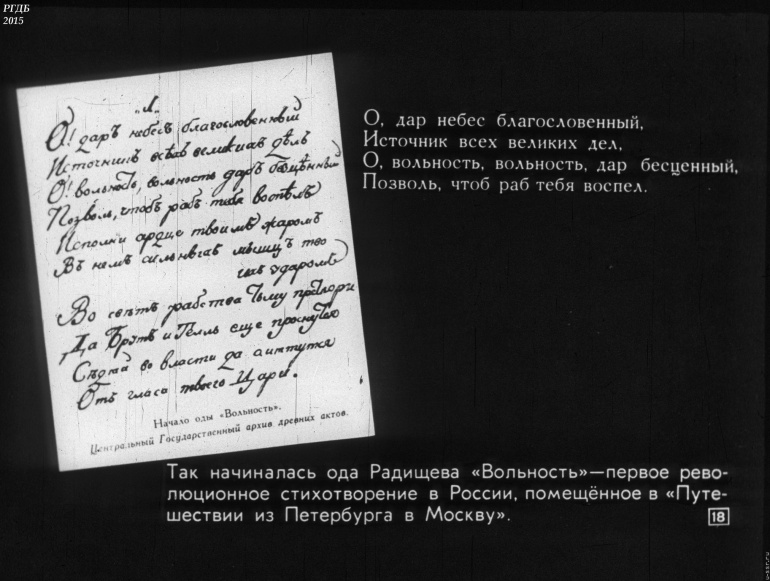 РГДБ
2015
„1„
О! даръ небесъ благословенный
Источникъ всѣхъ великихъ дѣлъ
О! вольность, вольность даръ безцѣнный
Позволь, чтобъ рабъ тебя воспѣлъ
Исполни сердце твоимъ жаромъ
Въ немъ сильныхъ мышцъ тво
ихъ ударомъ
Во свѣтъ рабства тьму претвори
Да Брутъ и Телль еще проснутся
Сѣдяй во власти да смятутся
Отъ гласа твоего Цари.
Начало оды «Вольность».
Центральный Государственный архив древних актов.
О, дар небес благословенный,
Источник всех великих дел,
О, вольность, вольность, дар бесценный,
Позволь, чтоб раб тебя воспел.
Так начиналась ода Радищева «Вольность»—первое рево-
люционное стихотворение в России, помещённое в «Путе-
шествии из Петербурга в Москву».
18